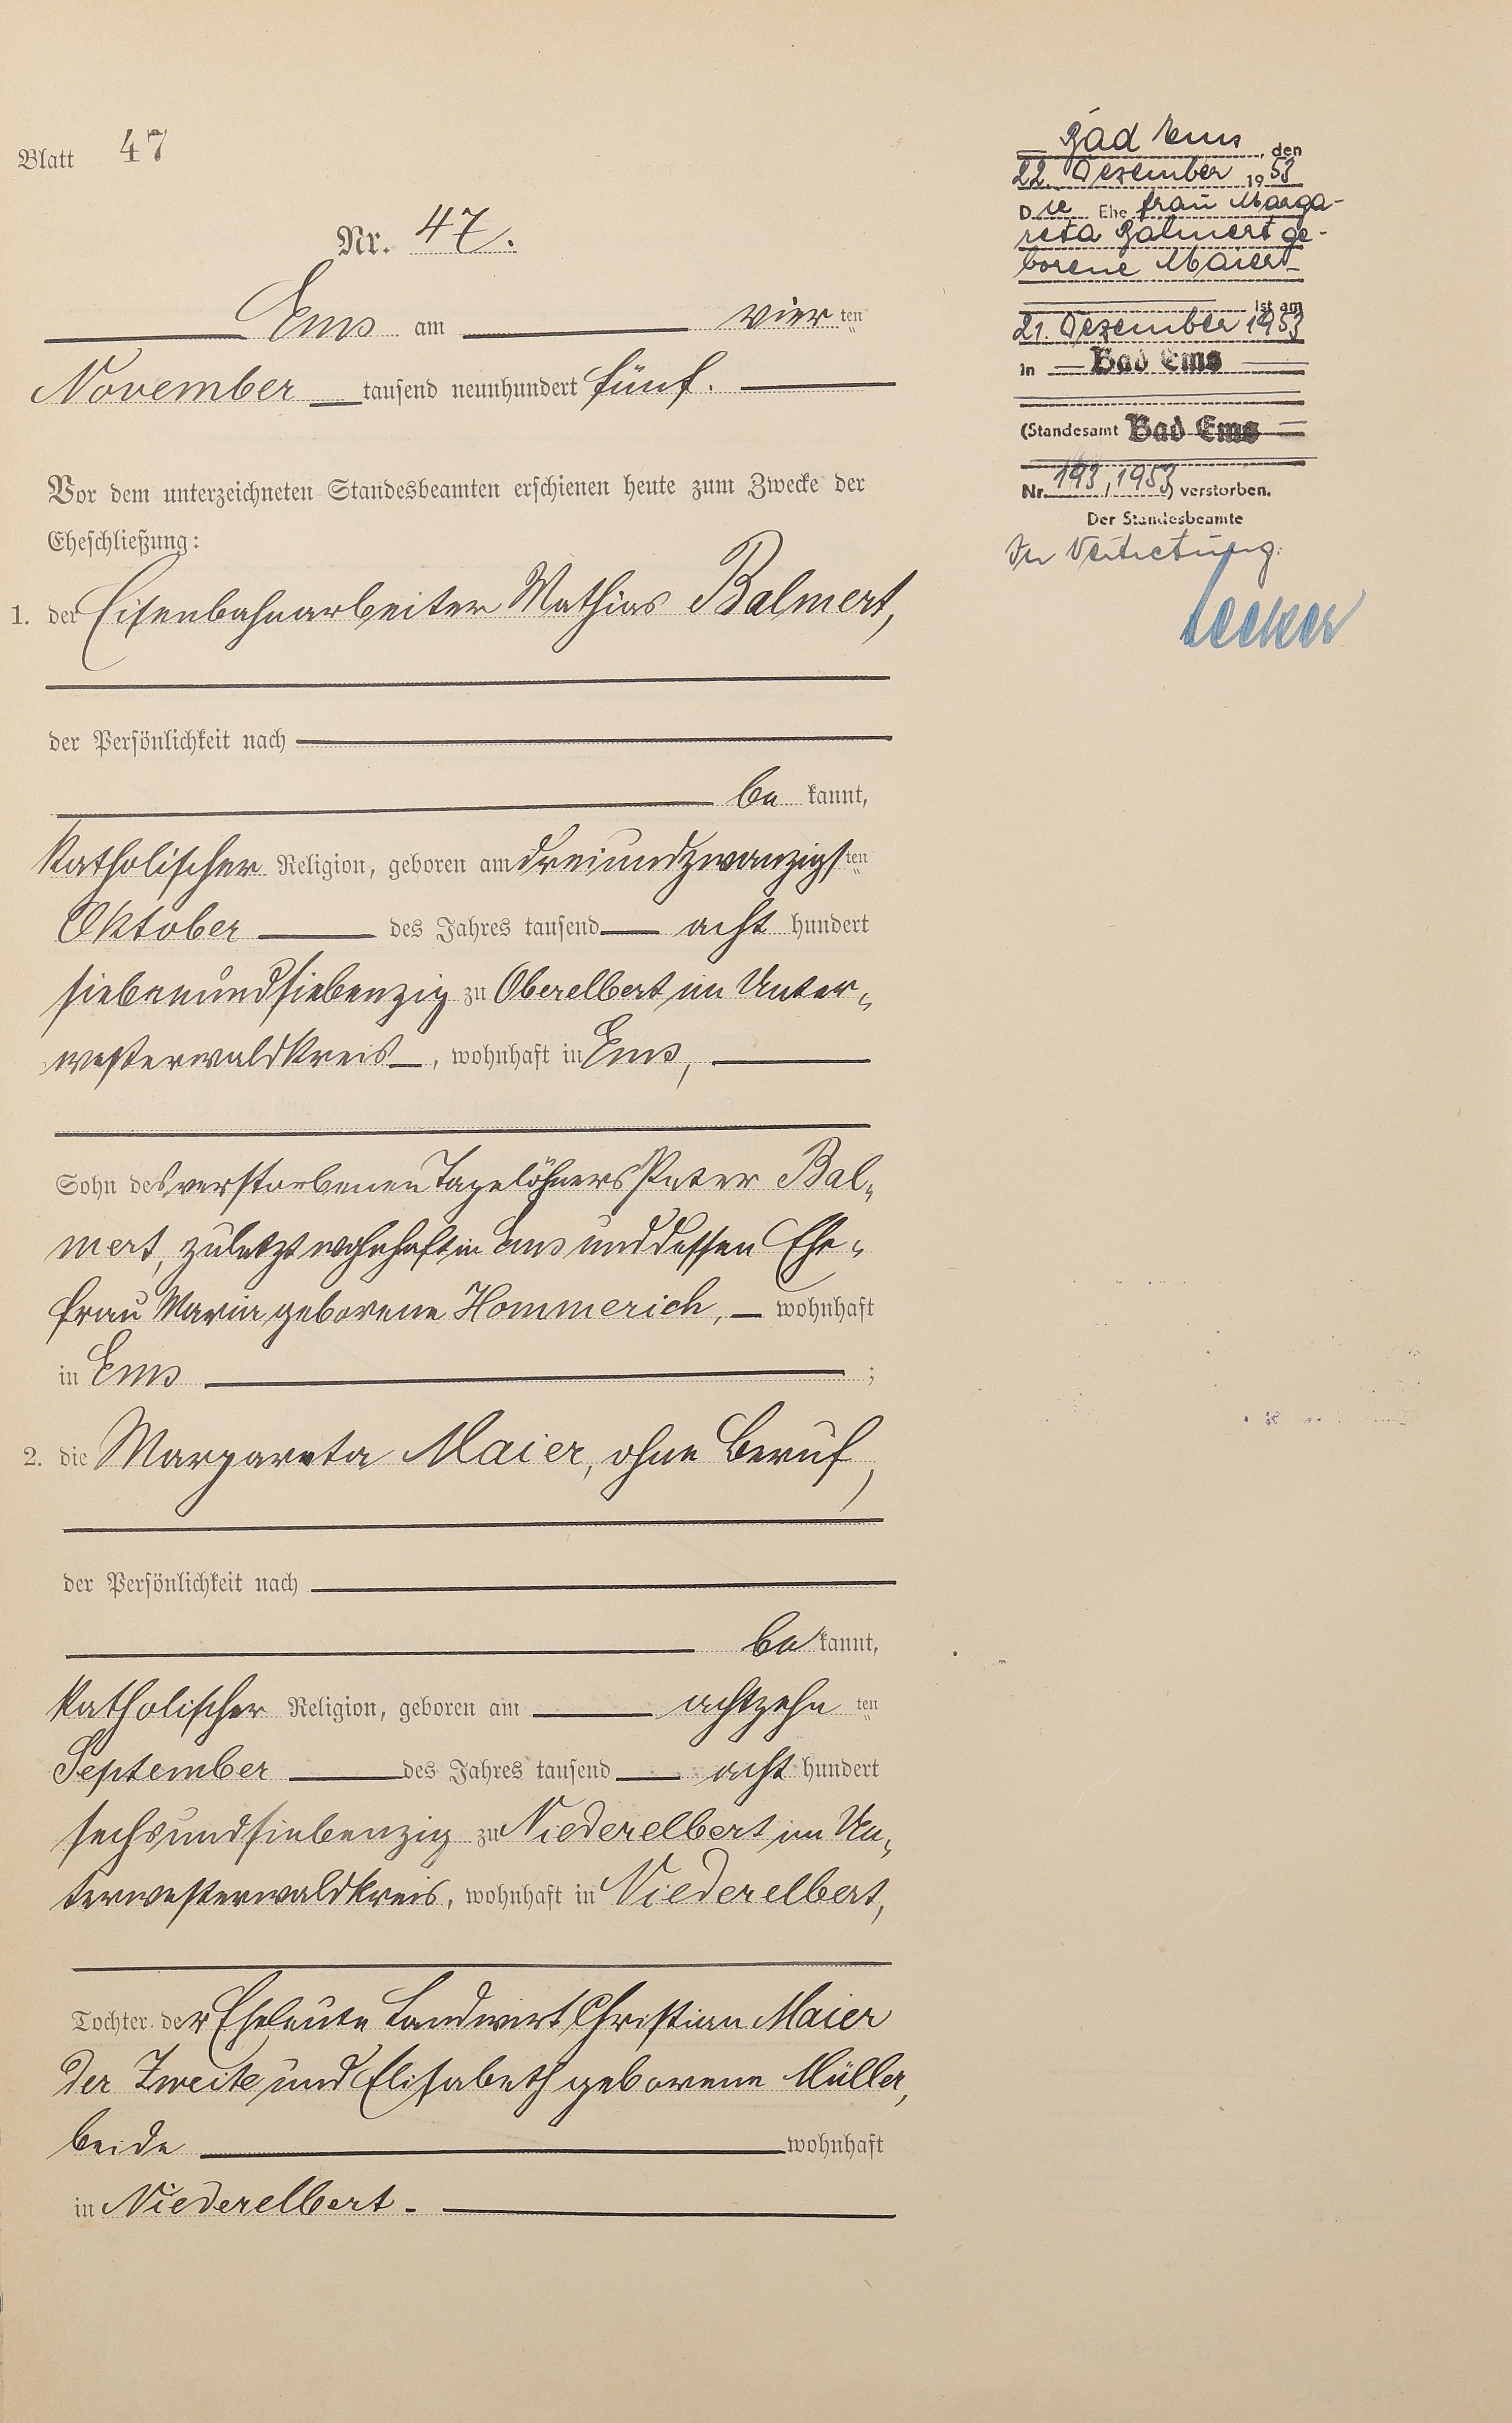 Blatt 47
Nr. 47.
Ems am vier ten
November tausend neunhundert fünf.
Vor dem unterzeichneten Standesbeamten erschienen heute zum Zwecke der
Eheschließung:
1. der Eisenbahnarbeiter Mathias Balmert,
der Persönlichkeit nach
be kannt,
katholischer Religion, geboren am dreiundzwanzigsten
Oktober des Jahres tausend acht hundert
siebenundsiebenzig zu Oberelbert im Unter-
westerwaldkreis, wohnhaft in Ems,
Sohn des verstorbenen Tagelöhners Peter Bal-
mert, zuletzt wohnhaft in Ems und dessen Ehe-
frau Maria geborene Hommerich, wohnhaft
in Ems ;
2. die Margareta Maier, ohne Beruf,
der Persönlichkeit nach
be kannt,
katholischer Religion, geboren am achtzehn ten
September des Jahres tausend acht hundert
sechsundsiebenzig zu Niederelbert im Un-
terwesterwaldkreis, wohnhaft in Niederelbert,
Tochter der Eheleute Landwirt Christian Maier
der Zweite und Elisabeth geborene Müller,
beide wohnhaft
in Niederelbert.
Bad Ems, den
22. Dezember 1953
Die Ehefrau Marga-
reta Balmert ge-
borene Maier
ist am
21. Dezember 1953
in Bad Ems
(Standesamt Bad Ems
Nr. 193, 1953) verstorben.
Der Standesbeamte
In Vertretung: